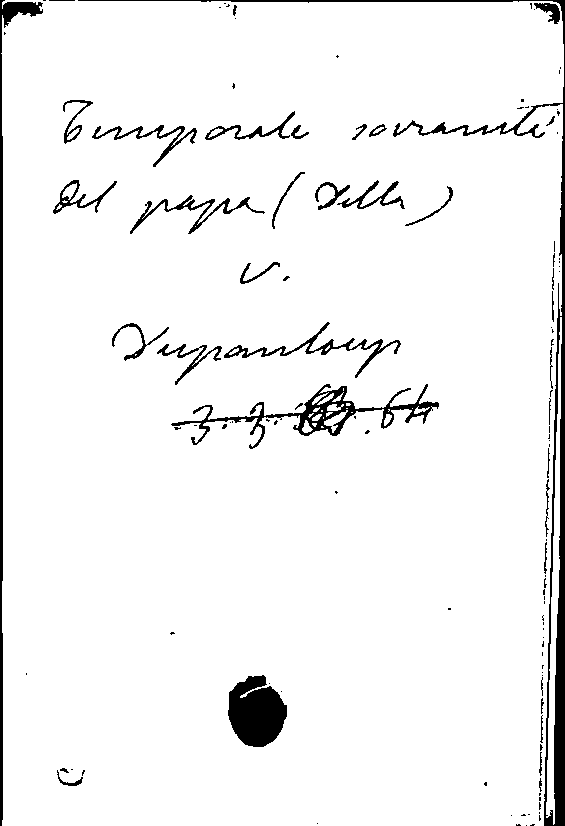 Temporale sovranità
del papa (Della)
v.
Dupanloup
3.3. .64